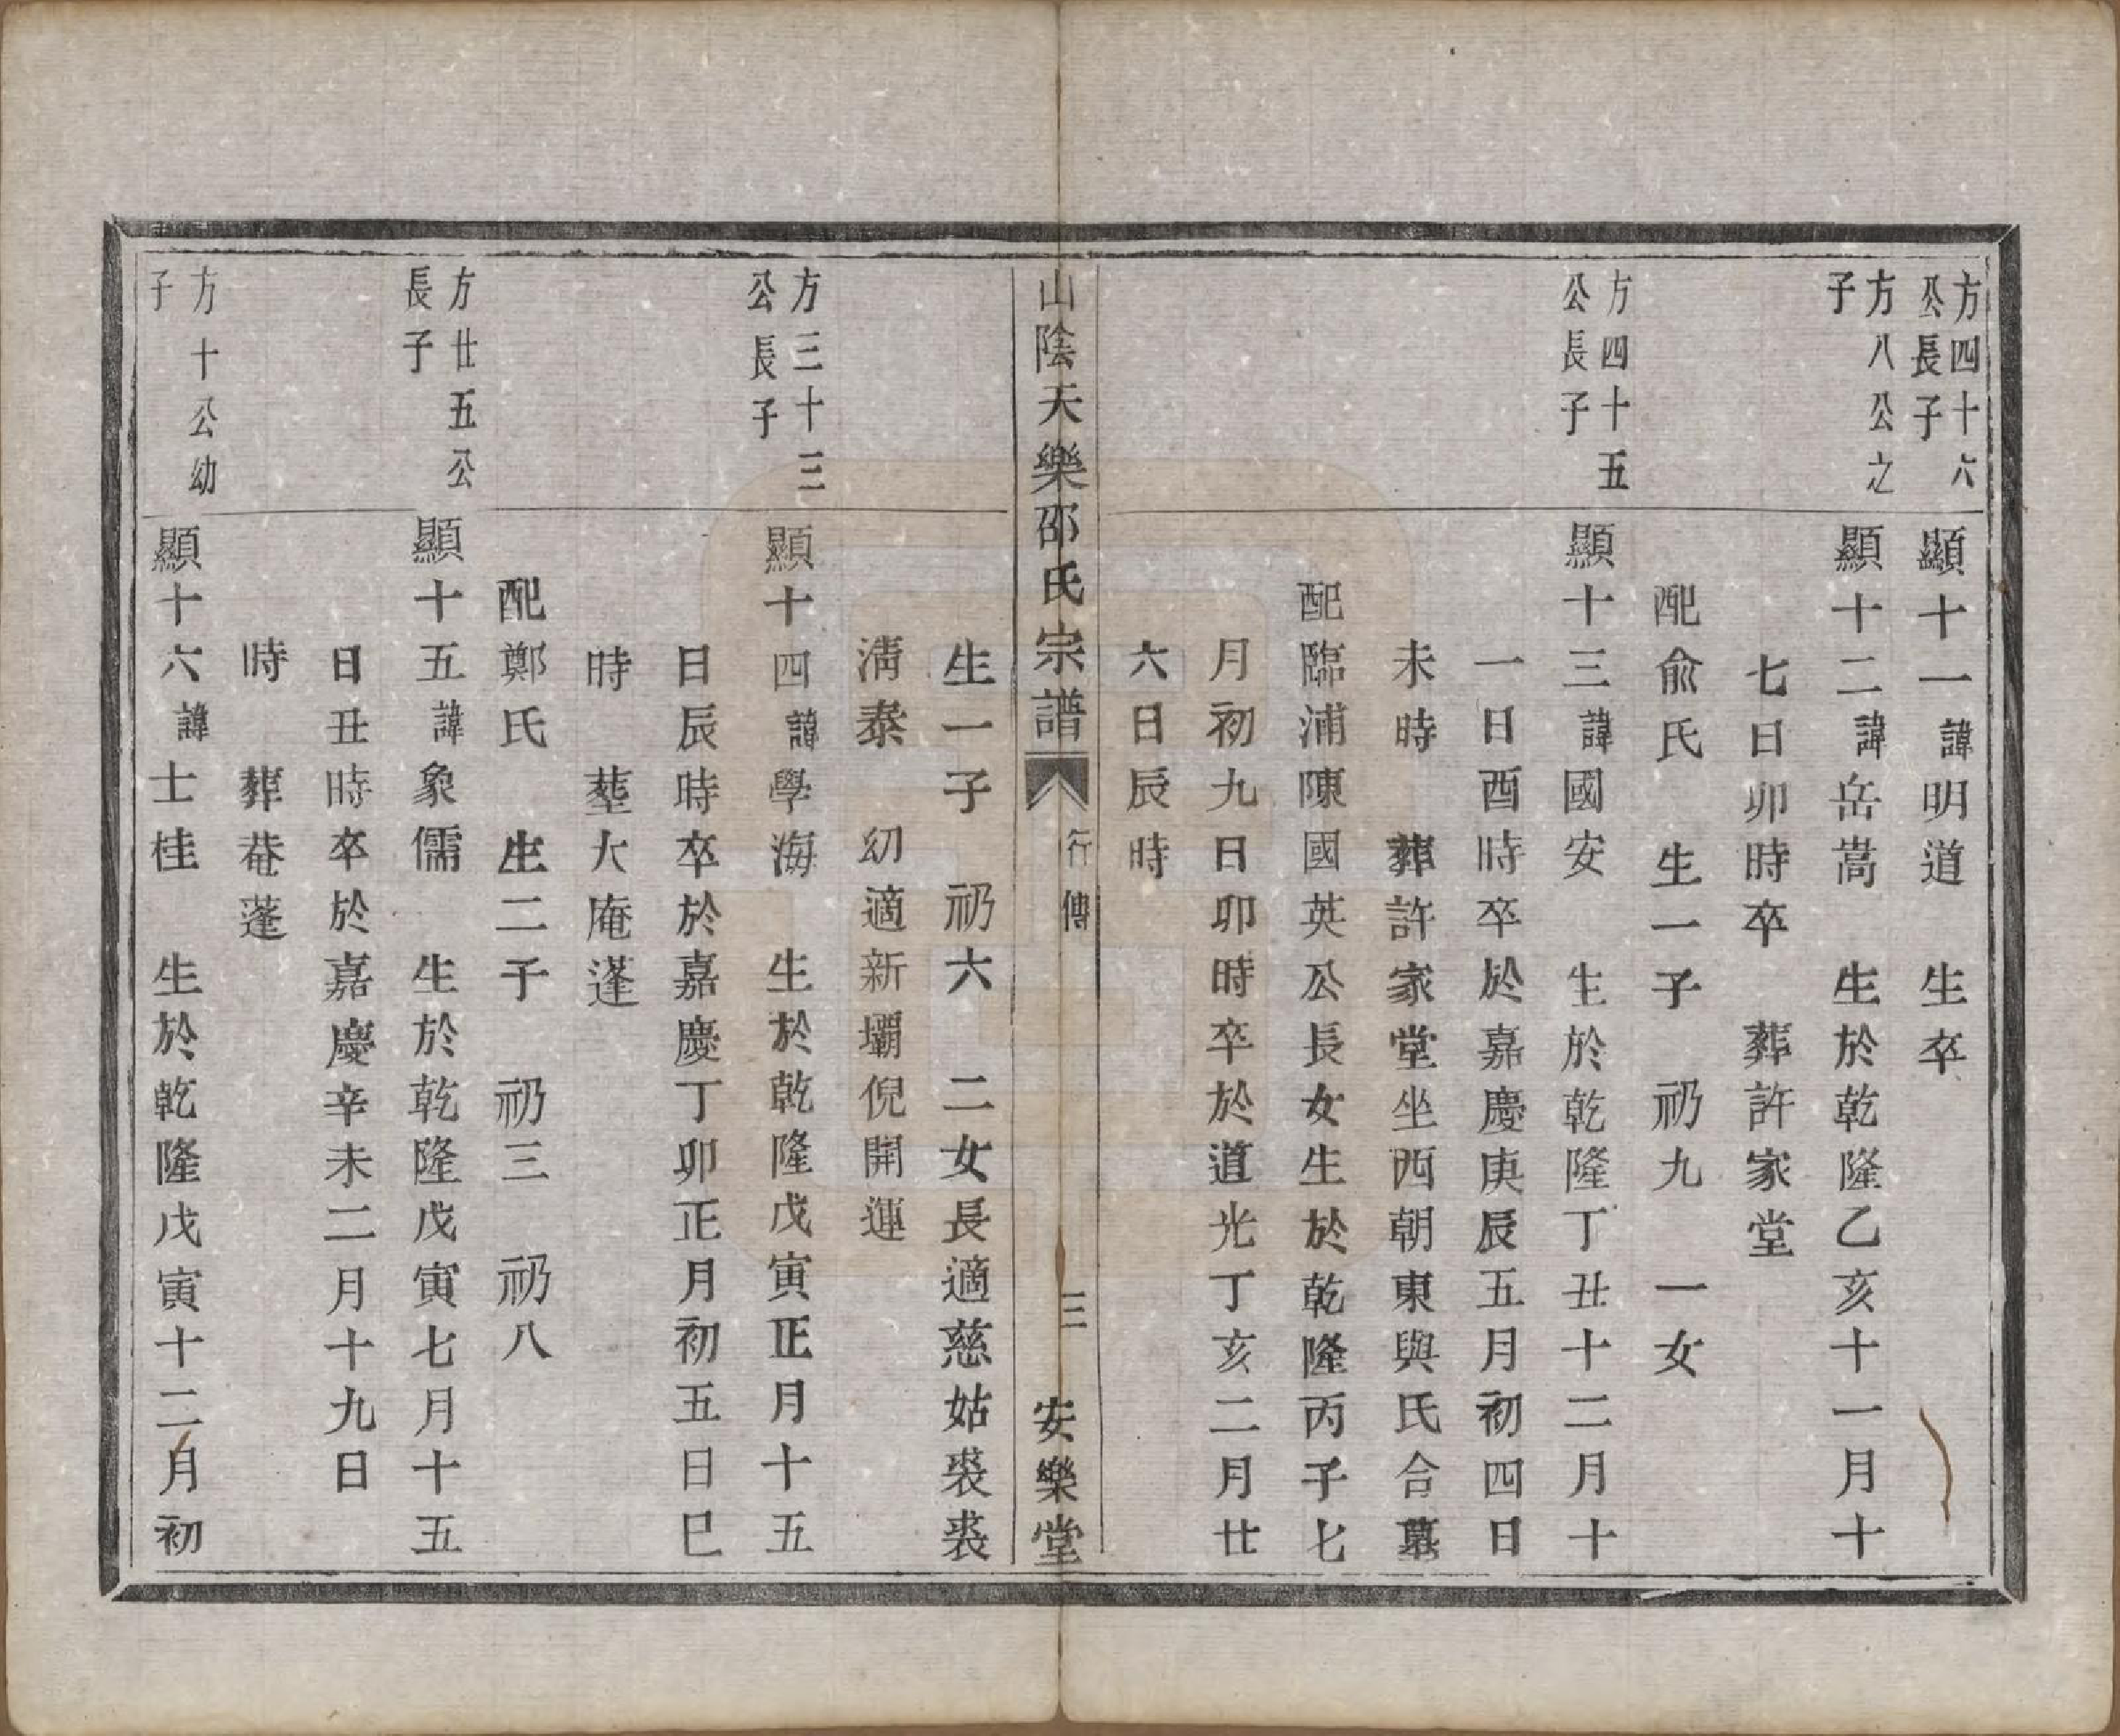 方四十六
公長子
顯十一諱明道　生卒
方八公之
子
顯十二諱岳嵩　生於乾隆乙亥十一月十
七日卯時卒　葬許家堂
配俞氏　生一子　礽九　一女
方四十五
公長子
顯十三諱國安　生於乾隆丁丑十二月十
一日酉時卒於嘉慶庚辰五月初四日
未時　葬許家堂坐西朝東與氏合墓
配臨浦陳國英公長女生於乾隆丙子七
月初九日卯時卒於道光丁亥二月廿
六日辰時
山陰天樂邵氏宗譜
行傳
三
安樂堂
生一子　礽六　二女長適慈姑裘裘
淸泰　幼適新壩倪開運
方三十三
公長子
顯十四諱學海　生於乾隆戊寅正月十五
日辰時卒於嘉慶丁卯正月初五日巳
時　塟大庵蓬
配鄭氏　生二子　礽三　礽八
方廿五公
長子
顯十五諱象儒　生於乾隆戊寅七月十五
日丑時卒於嘉慶辛未二月十九日
時　葬菴蓬
方十公幼
子
顯十六諱士桂　生於乾隆戊寅十二月初